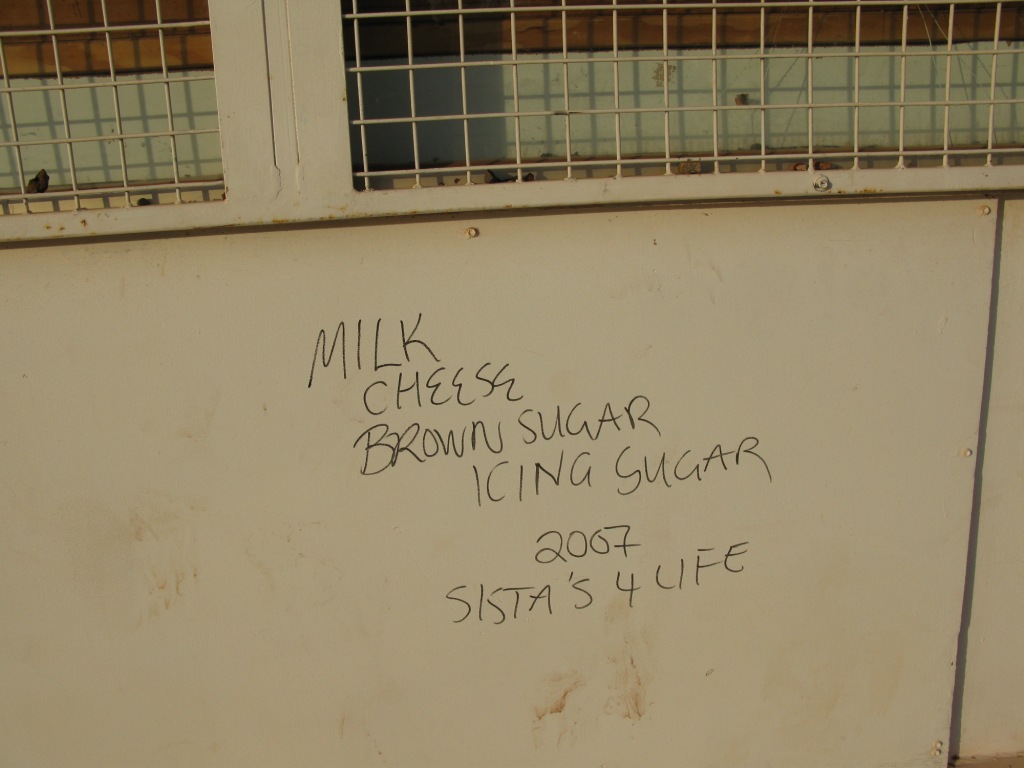 MILK
CHEESE
BROWN SUGAR
ICING SUGAR
2007
SISTA'S 4 LIFE